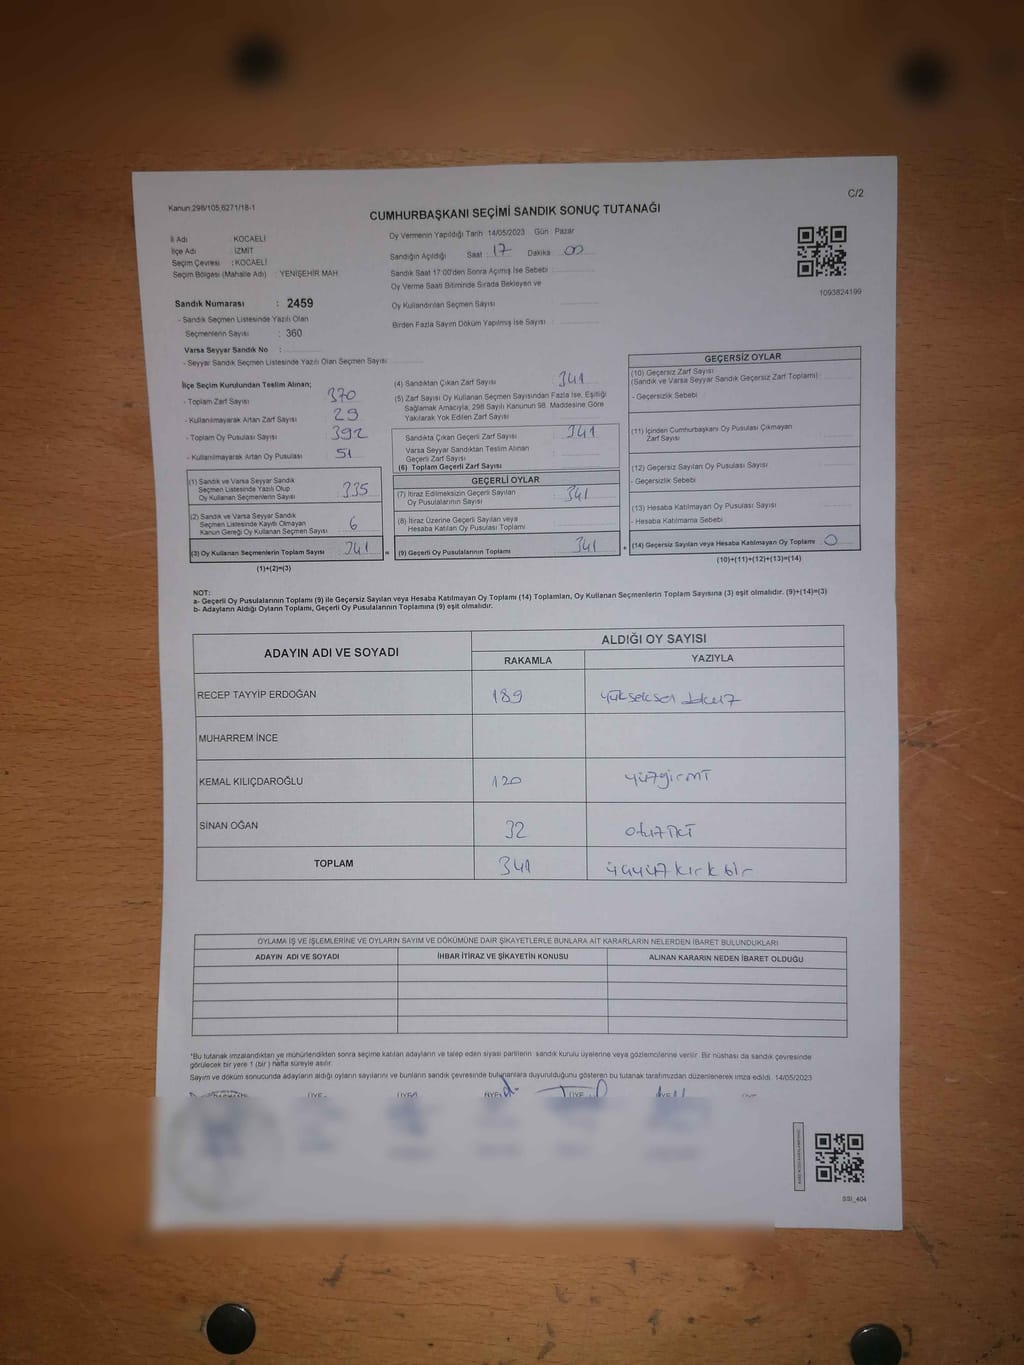 Kanun:298/105,6271/18-1
C/2
CUMHURBAŞKANI SEÇİMİ SANDIK SONUÇ TUTANAĞI
İl Adı : KOCAELİ
İlçe Adı : İZMİT
Seçim Çevresi : KOCAELİ
Seçim Bölgesi (Mahalle Adı) : YENİŞEHİR MAH.
Oy Vermenin Yapıldığı Tarih :14/05/2023 Gün : Pazar
Sandığın Açıldığı Saat : 17 Dakika : 00
Sandık Saat 17:00'den Sonra Açılmış İse Sebebi :
Oy Verme Saati Bitiminde Sırada Bekleyen ve
Oy Kullandırılan Seçmen Sayısı
Birden Fazla Sayım Döküm Yapılmış İse Sayısı :
1093824199
Sandık Numarası : 2459
- Sandık Seçmen Listesinde Yazılı Olan
Seçmenlerin Sayısı : 360
Varsa Seyyar Sandık No :
- Seyyar Sandık Seçmen Listesinde Yazılı Olan Seçmen Sayısı
İlçe Seçim Kurulundan Teslim Alınan;
- Toplam Zarf Sayısı 370
- Kullanılmayarak Artan Zarf Sayısı 29
- Toplam Oy Pusulası Sayısı 392
- Kullanılmayarak Artan Oy Pusulası 51
(1) Sandık ve Varsa Seyyar Sandık
Seçmen Listesinde Yazılı Olup
Oy Kullanan Seçmenlerin Sayısı 335
(2) Sandık ve Varsa Seyyar Sandık
Seçmen Listesinde Kayıtlı Olmayan
Kanun Gereği Oy Kullanan Seçmen Sayısı 6
(3) Oy Kullanan Seçmenlerin Toplam Sayısı 341 =
(1)+(2)=(3)
(4) Sandıktan Çıkan Zarf Sayısı 341
(5) Zarf Sayısı Oy Kullanan Seçmen Sayısından Fazla İse, Eşitliği
Sağlamak Amacıyla, 298 Sayılı Kanunun 98. Maddesine Göre
Yakılarak Yok Edilen Zarf Sayısı
Sandıkta Çıkan Geçerli Zarf Sayısı : 341
Varsa Seyyar Sandıktan Teslim Alınan
Geçerli Zarf Sayısı
(6) Toplam Geçerli Zarf Sayısı
GEÇERLİ OYLAR
(7) İtiraz Edilmeksizin Geçerli Sayılan
Oy Pusulalarının Sayısı : 341
(8) İtiraz Üzerine Geçerli Sayılan veya
Hesaba Katılan Oy Pusulası Toplamı
(9) Geçerli Oy Pusulalarının Toplamı 341 +
GEÇERSİZ OYLAR
(10) Geçersiz Zarf Sayısı
(Sandık ve Varsa Seyyar Sandık Geçersiz Zarf Toplamı)
- Geçersizlik Sebebi :
(11) İçinden Cumhurbaşkanı Oy Pusulası Çıkmayan
Zarf Sayısı
(12) Geçersiz Sayılan Oy Pusulası Sayısı
- Geçersizlik Sebebi
(13) Hesaba Katılmayan Oy Pusulası Sayısı
- Hesaba Katılmama Sebebi
(14) Geçersiz Sayılan veya Hesaba Katılmayan Oy Toplamı 0
(10)+(11)+(12)+(13)=(14)
NOT:
a- Geçerli Oy Pusulalarının Toplamı (9) ile Geçersiz Sayılan veya Hesaba Katılmayan Oy Toplamı (14) Toplamları, Oy Kullanan Seçmenlerin Toplam Sayısına (3) eşit olmalıdır. (9)+(14)=(3)
b- Adayların Aldığı Oyların Toplamı, Geçerli Oy Pusulalarının Toplamına (9) eşit olmalıdır.
ADAYIN ADI VE SOYADI
ALDIĞI OY SAYISI
RAKAMLA YAZIYLA
RECEP TAYYİP ERDOĞAN 189
MUHARREM İNCE
KEMAL KILIÇDAROĞLU 120 yüzgirmi
SİNAN OĞAN 32 otuziki
TOPLAM 341 üçyüz kırk bir
OYLAMA İŞ VE İŞLEMLERİNE VE OYLARIN SAYIM VE DÖKÜMÜNE DAİR ŞİKAYETLERLE BUNLARA AİT KARARLARIN NELERDEN İBARET BULUNDUKLARI
ADAYIN ADI VE SOYADI İHBAR İTİRAZ VE ŞİKAYETİN KONUSU ALINAN KARARIN NEDEN İBARET OLDUĞU
*Bu tutanak imzalandıktan ve mühürlendikten sonra seçime katılan adayların ve talep eden siyasi partilerin sandık kurulu üyelerine veya gözlemcilerine verilir. Bir nüshası da sandık çevresinde
görülecek bir yere 1 (bir) hafta süreyle asılır.
Sayım ve döküm sonucunda adayların aldığı oyların sayılarını ve bunların sandık çevresinde bulunanlara duyurulduğunu gösteren bu tutanak tarafımızdan düzenlenerek imza edildi. 14/05/2023
SSI_404